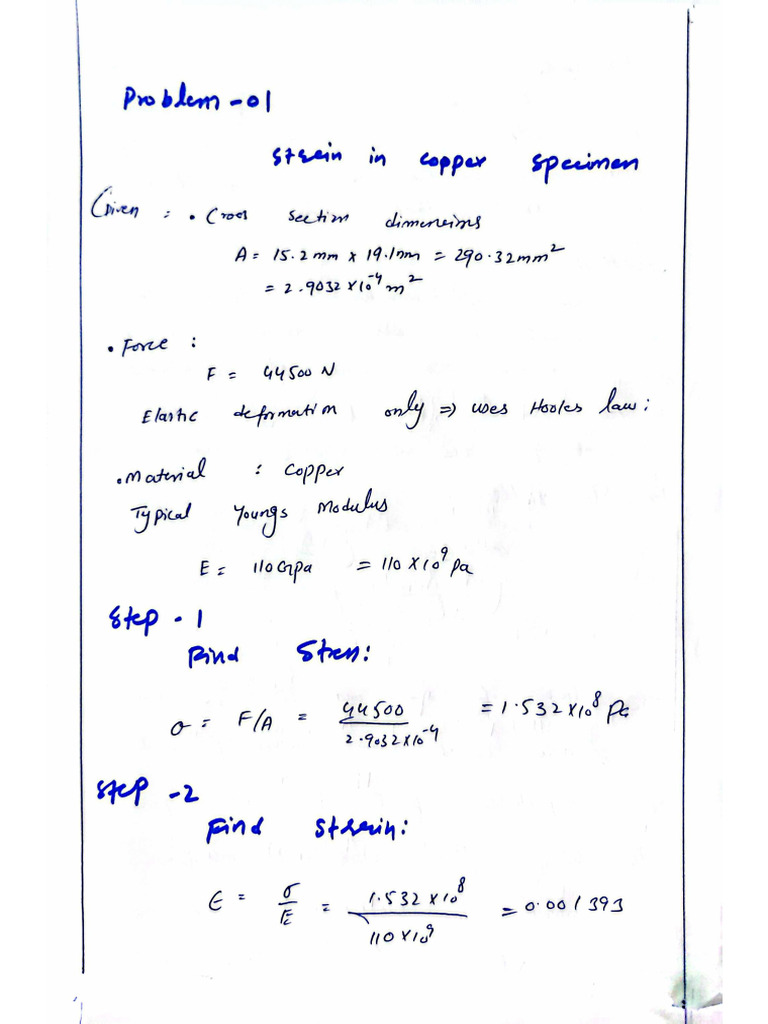 Problem - 01
Strain in copper specimen
Given : • Cross section dimensions
A = 15.2 mm x 19.1mm = 290.32mm²
= 2.9032 x 10⁻⁴ m²
• Force :
F = 44500 N
Elastic deformation only => uses Hookes law :
• Material : copper
Typical Youngs Modulus
E = 110 Gpa = 110 x 10⁹ Pa
Step - 1
Find Stress :
σ = F/A = 44500 / 2.9032 x 10⁻⁴ = 1.532 x 10⁸ Pa
Step - 2
Find Strain :
ϵ = σ/E = 1.532 x 10⁸ / 110 x 10⁹ = 0.001393